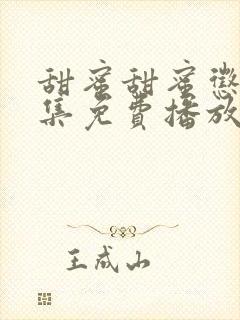 甜蜜甜蜜懲
集免費播放
王成山